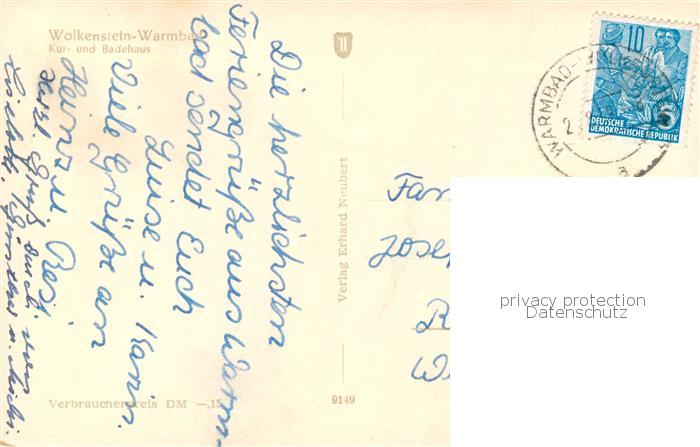 Wolkenstein-Warmbad
Kur- und Badehaus
Die herzlichsten
Feriengrüße aus Warm-
bad sendet Euch
Luise u. Karin.
Viele Grüße an
Heinz u. Resi
Herzl. Gruß auch von
Verbraucherpreis DM —,15
Verlag Erhard Neubert
9149
10
DEUTSCHE
DEMOKRATISCHE REPUBLIK
WARMBAD-
Fam
Josef
privacy protection
Datenschutz